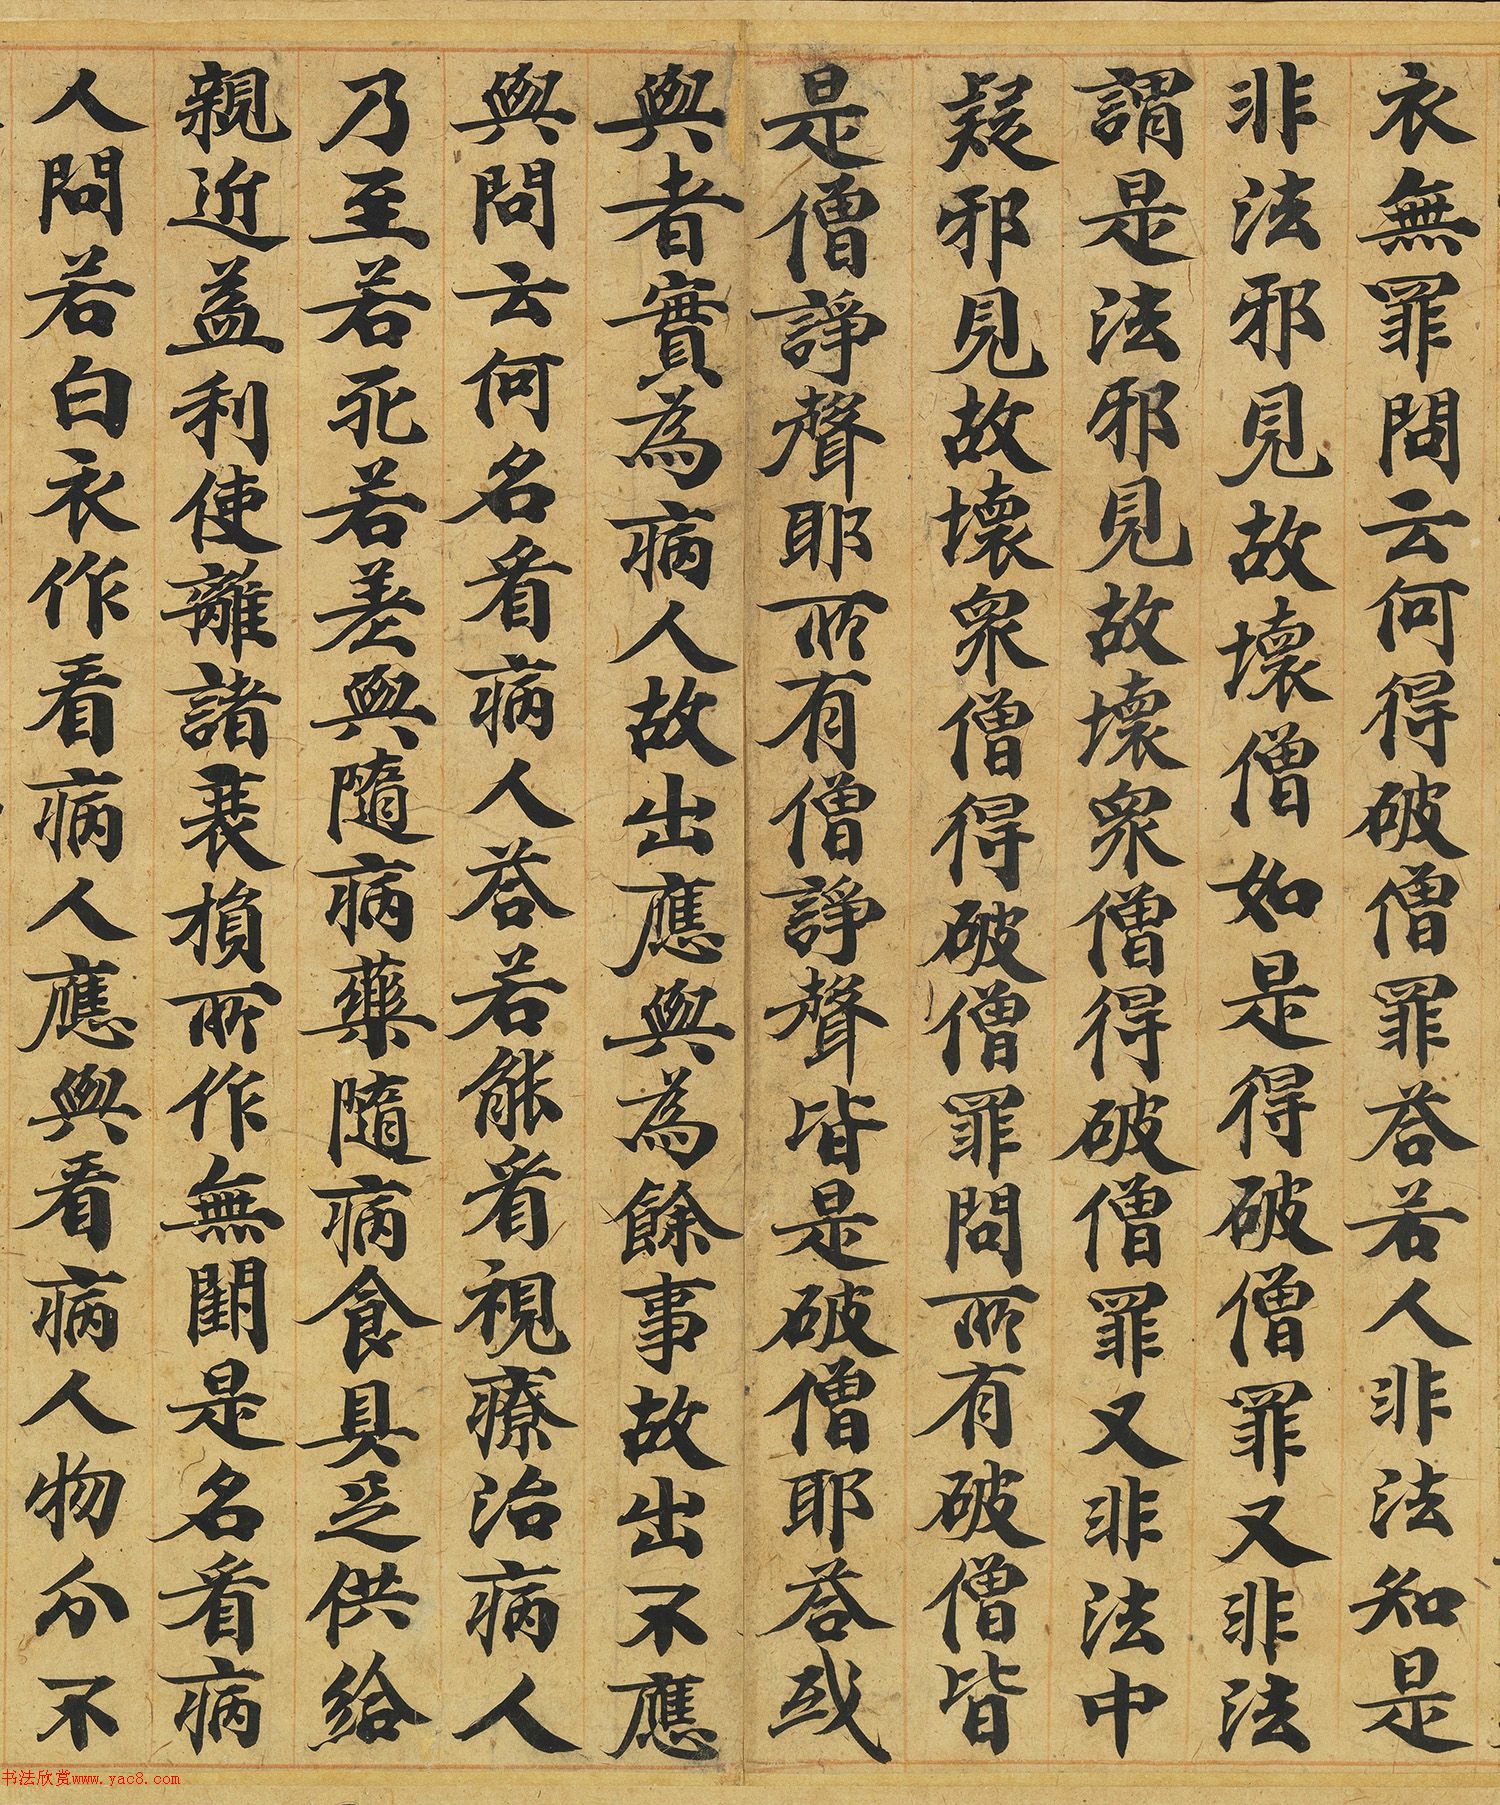 衣無罪問云何得破僧罪荅若人非法知是
非法邪見故壞僧如是得破僧罪又非法
謂是法邪見故壞眾僧得破僧罪又非法中
疑邪見故壞眾僧得破僧罪問所有破僧皆
是僧諍聲耶所有僧諍聲皆是破僧耶荅或
與者實為病人故出應與為餘事故出不應
與問云何名看病人荅若能看視療治病人
乃至若死若差與隨病藥隨病食具乏供給
親近益利使離諸衰損所作無閒是名看病
人問若白衣作看病人應與看病人物分不
书法欣赏www.yac8.com